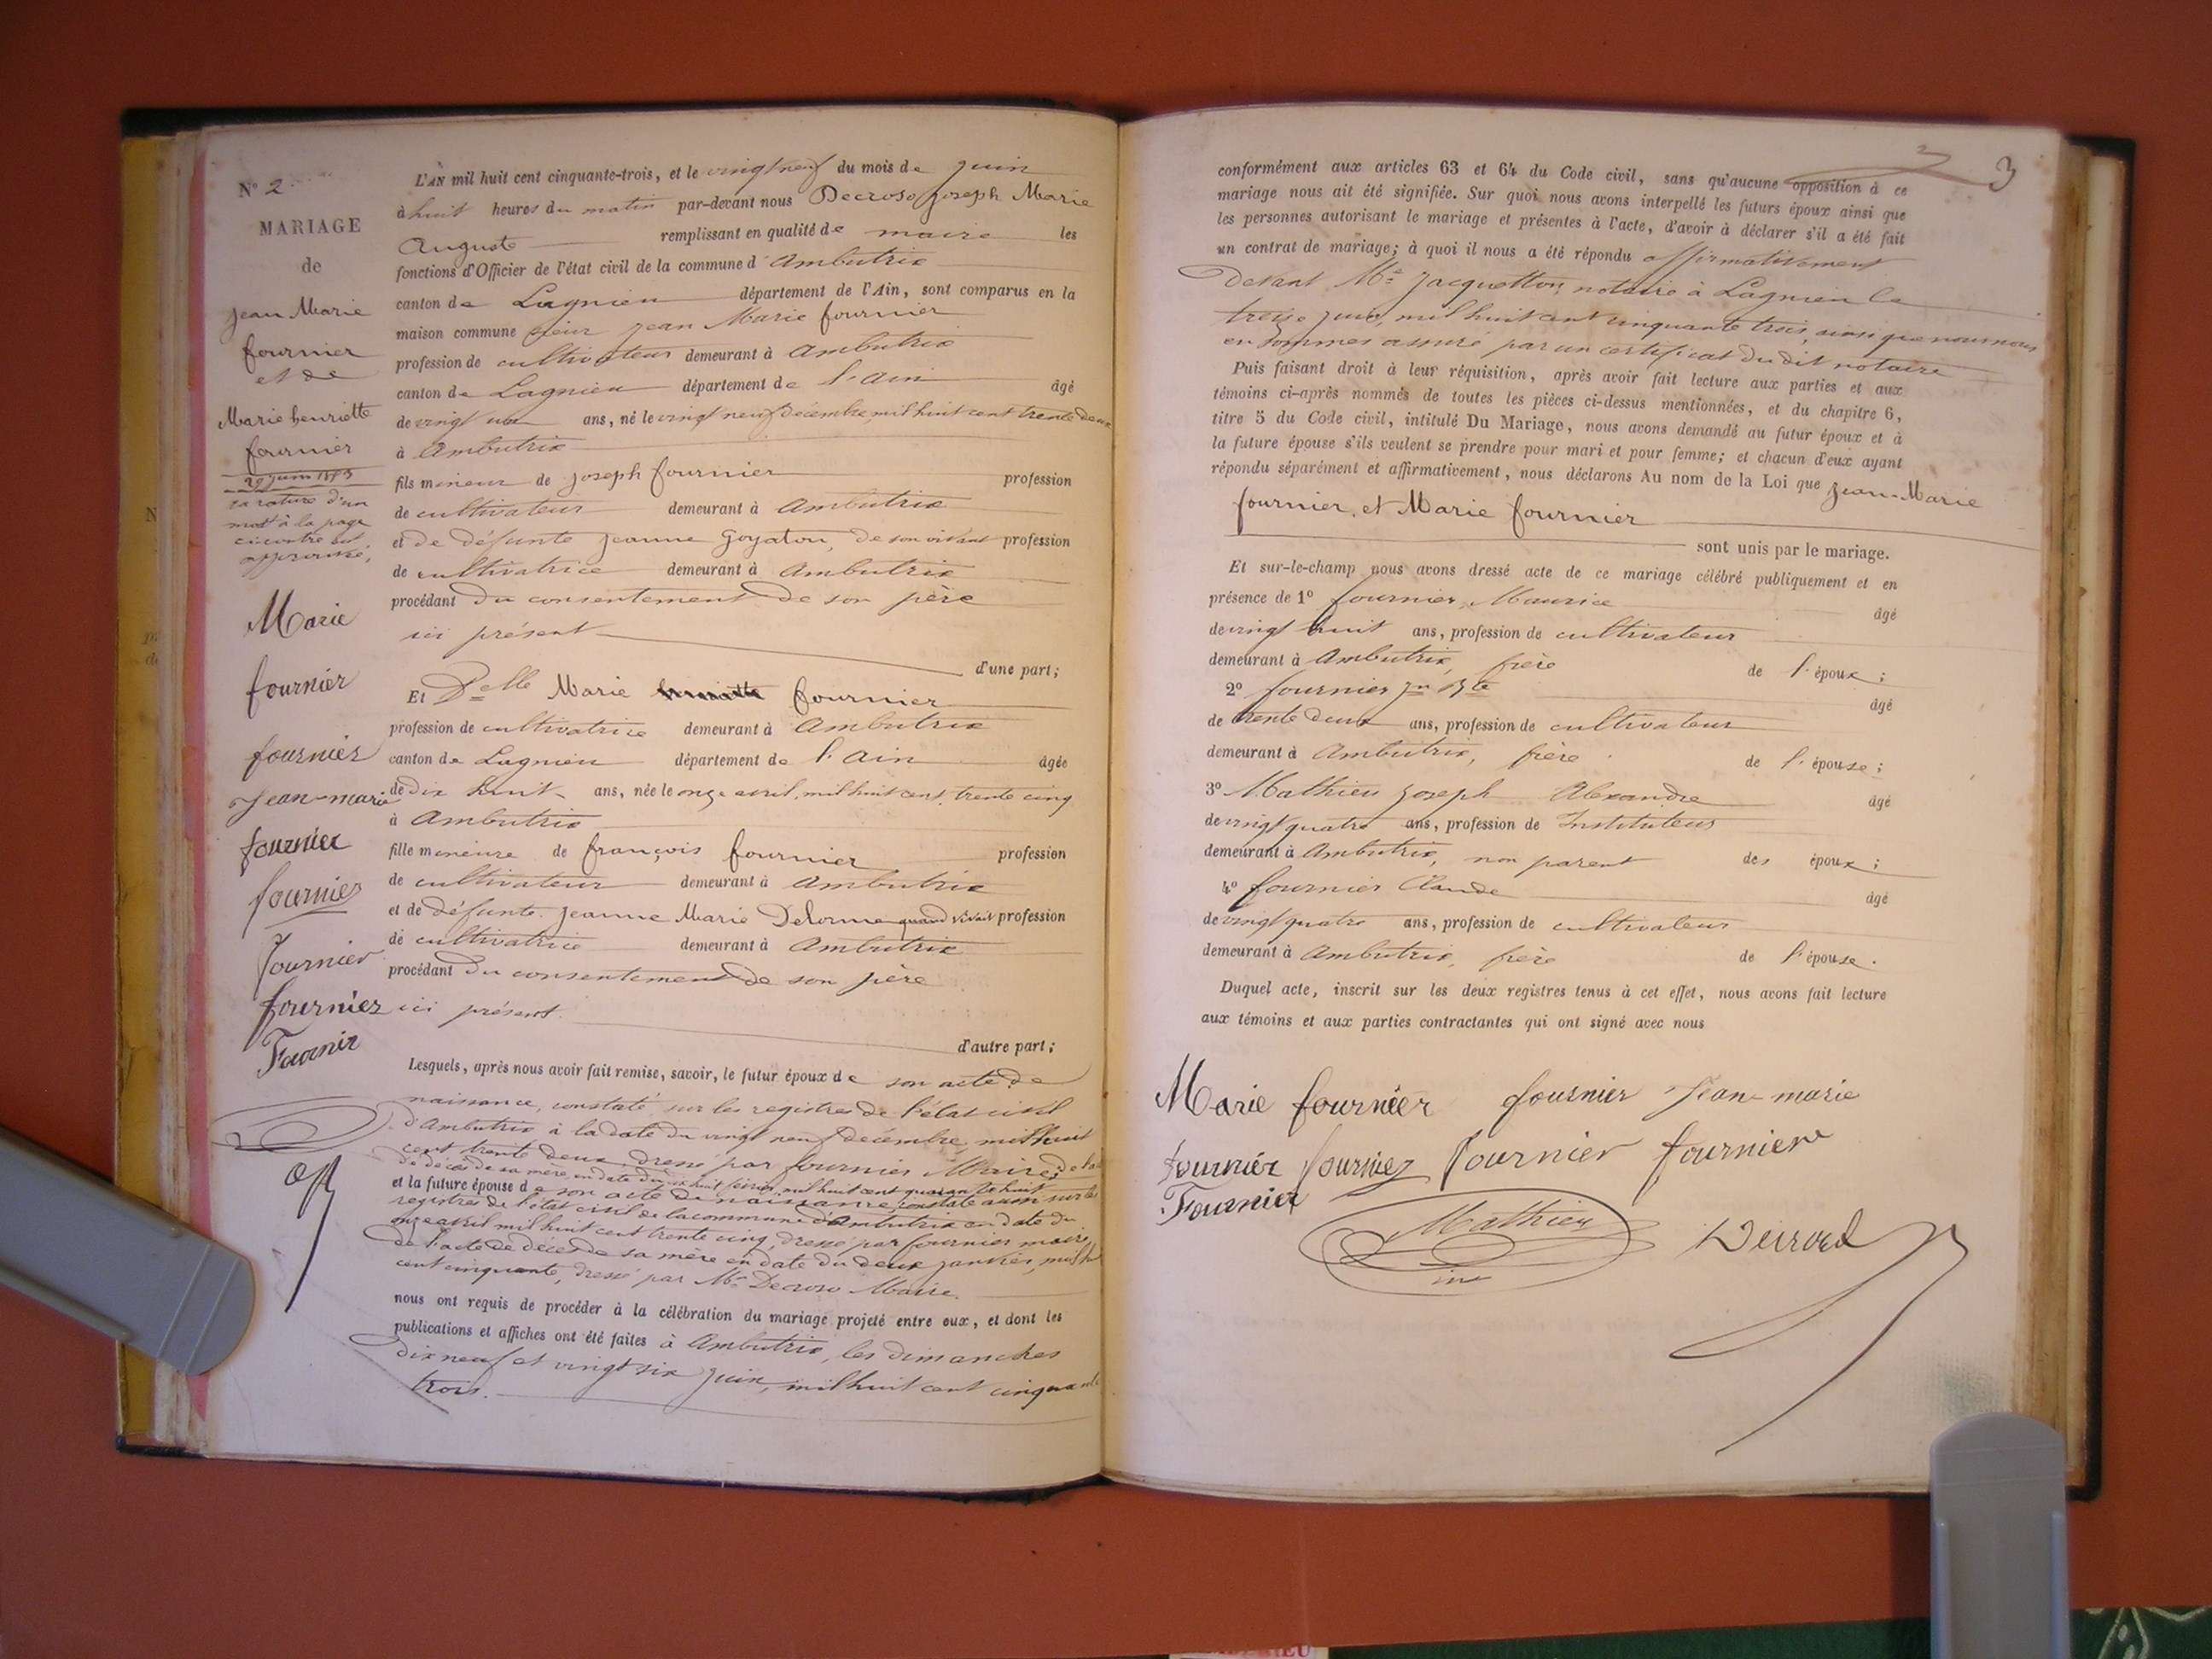 N° 2
MARIAGE
de
Jean Marie
fournier
et de
Marie henriette
fournier
29 juin 1853
la rature d'un
mot à la page
ci contre est
approuvée,
Marie
fournier
fournier
Jean-marie
fournier
fournier
fournier
fournier
Fournier
L'AN mil huit cent cinquante-trois, et le vingt neuf du mois de juin
à huit heures du matin par-devant nous Decroso joseph Marie
Auguste remplissant en qualité de maire les
fonctions d'Officier de l'état civil de la commune d'Ambutrix
canton de Lagnieu département de l'Ain, sont comparus en la
maison commune sieur jean Marie fournier
profession de cultivateur demeurant à Ambutrix
canton de Lagnieu département de l'Ain âgé
de vingt un ans, né le vingt neuf décembre, mil huit cent trente deux
à Ambutrix
fils mineur de joseph fournier profession
de cultivateur demeurant à Ambutrix
et de défunte jeanne Goyaton, de son vivant profession
de cultivatrice demeurant à Ambutrix
procédant du consentement de son père
ici présent
d'une part;
Et Delle Marie henriette fournier
profession de cultivatrice demeurant à Ambutrix
canton de Lagnieu département de l'Ain âgée
de dix huit ans, née le onze avril, mil huit cent trente cinq
à Ambutrix
fille mineure de françois fournier profession
de cultivateur demeurant à Ambutrix
et de défunte jeanne Marie Delorme quand vivait profession
de cultivatrice demeurant à Ambutrix
procédant du consentement de son père
ici présent.
d'autre part;
Lesquels, après nous avoir fait remise, savoir, le futur époux de son acte de
naissance, constaté sur les registres de l'état civil
d'Ambutrix à la date du vingt neuf décembre, mil huit
cent trente deux, dressé par fournier Maire; de la
de décès de sa mère, en date du huit février, mil huit cent quarante huit
et la future épouse de son acte de naissance constaté aussi sur les
registres de l'état civil de la commune d'Ambutrix en date du
onze avril mil huit cent trente cinq, dressé par fournier maire,
de l'acte de décès de sa mère en date du deux janvier, mil huit
cent cinquante, dressé par Mr Decroso Maire.
nous ont requis de procéder à la célébration du mariage projeté entre eux, et dont les
publications et affiches ont été faites à Ambutrix, les dimanches
dix neuf et vingt six juin, mil huit cent cinquante
trois.
3
conformément aux articles 63 et 64 du Code civil, sans qu'aucune opposition à ce
mariage nous ait été signifiée. Sur quoi nous avons interpellé les futurs époux ainsi que
les personnes autorisant le mariage et présentes à l'acte, d'avoir à déclarer s'il a été fait
un contrat de mariage; à quoi il nous a été répondu affirmativement
devant Me Jacquetton, notaire à Lagnieu le
treize juin, mil huit cent cinquante trois, ainsi que nous nous
en sommes assuré par un certificat du dit notaire
Puis faisant droit à leur réquisition, après avoir fait lecture aux parties et aux
témoins ci-après nommés de toutes les pièces ci-dessus mentionnées, et du chapitre 6,
titre 5 du Code civil, intitulé Du Mariage, nous avons demandé au futur époux et à
la future épouse s'ils veulent se prendre pour mari et pour femme; et chacun d'eux ayant
répondu séparément et affirmativement, nous déclarons Au nom de la Loi que Jean-Marie
fournier, et Marie fournier
sont unis par le mariage.
Et sur-le-champ nous avons dressé acte de ce mariage célébré publiquement et en
présence de 1° fournier, Maurice âgé
de vingt huit ans, profession de cultivateur
demeurant à Ambutrix, frère de l'époux;
2° fournier Jn Bte âgé
de trente deux ans, profession de cultivateur
demeurant à Ambutrix, frère de l'épouse;
3° Mathieu joseph Alexandre âgé
de vingt quatre ans, profession de Instituteur
demeurant à Ambutrix, non parent des époux;
4° fournier Claude âgé
de vingt quatre ans, profession de cultivateur
demeurant à Ambutrix, frère de l'épouse.
Duquel acte, inscrit sur les deux registres tenus à cet effet, nous avons fait lecture
aux témoins et aux parties contractantes qui ont signé avec nous
Marie fournier fournier Jean-marie
fournier fournier fournier fournier
Fournier
Mathieu